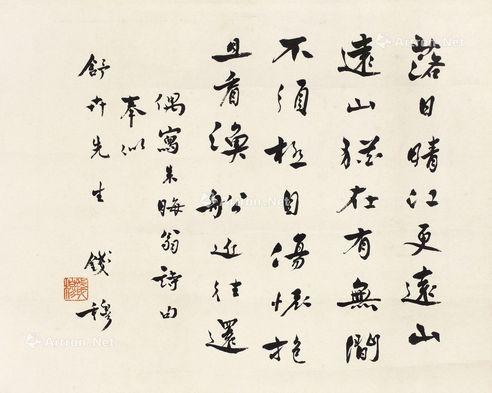 落日晴江更遠山
遠山猶在有無間
不須極目傷懷抱
且看漁舩近往還
偶寫朱晦翁詩由
奉似
舒卉先生 錢穆
Artron.Net